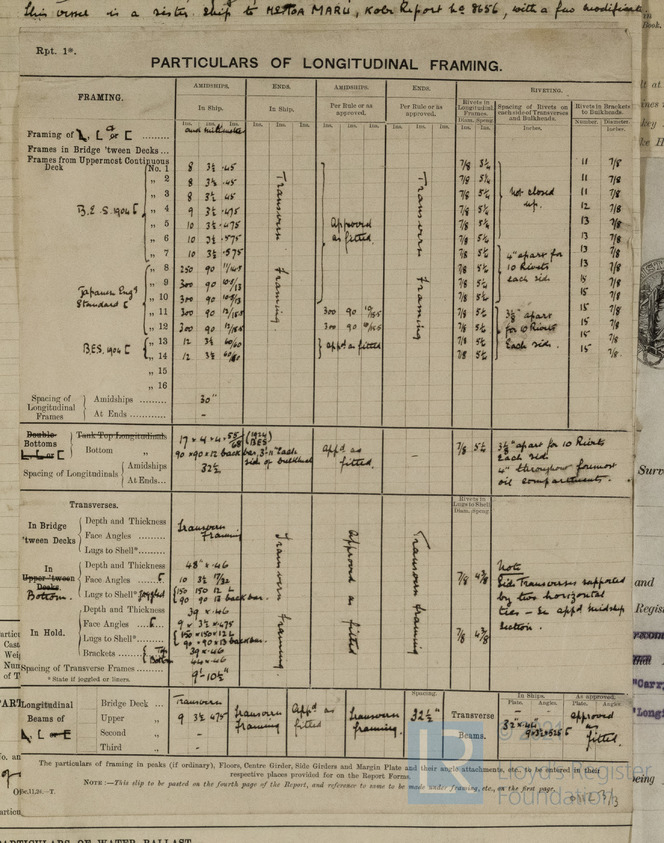 This vessel is a sister ship to MARU, Kobe Report No 8656, with a few modifications
Rpt. 1*.
PARTICULARS OF LONGITUDINAL FRAMING.
FRAMING.
AMIDSHIPS. ENDS. AMIDSHIPS. ENDS. RIVETING.
In Ship. In Ship. Per Rule or as approved. Per Rule or as approved.
Rivets in Longitudinal Frames. Diam. Spcng
Spacing of Rivets on each side of Transverses and Bulkheads. Inches.
Rivets in Brackets to Bulkheads. Number. Diameter. Inches.
Ins. Ins. Ins. Ins. Ins. Ins. Ins. Ins. Ins. Ins. Ins. Ins. Ins. Ins.
Framing of L, [ or [ .........
and millimetres
Frames in Bridge 'tween Decks...
Frames from Uppermost Continuous Deck
No. 1 8 3½ .45 7/8 5¼ 11 7/8
„ 2 8 3½ .45 7/8 5¼ 11 7/8
„ 3 8 3½ .45 7/8 5¼ 11 7/8
„ 4 9 3½ .475 7/8 5¼ 12 7/8
„ 5 10 3½ .475 7/8 5¼ 13 7/8
„ 6 10 3½ .575 7/8 5¼ 13 7/8
„ 7 10 3½ .575 7/8 5¼ 13 7/8
„ 8 250 90 7/8 5¼ 13 7/8
„ 9 300 90 7/8 5¼ 15 7/8
„ 10 300 90 7/8 5¼ 15 7/8
„ 11 300 90 300 90 7/8 5¼ 15 7/8
„ 12 300 90 300 90 7/8 5¼ 15 7/8
„ 13 12 3½ 60/60 7/8 5¼ 15 7/8
„ 14 12 3½ 7/8 5¼ 15 7/8
„ 15
„ 16
B.E.S. 1904 [
Japanese Engg Standard [
B.E.S. 1904 [
Transverse framing
Approved as fitted.
appd as fitted
Transverse framing
Not closed up.
4" apart for 10 Rivets each side
3½" apart for 10 Rivets Each side.
Spacing of Longitudinal Frames
Amidships ......... 30"
At Ends ...... -
Double Bottoms Tank Top Longitudinals
L, [ or [
Bottom „
17 × 4 × 4 (1924 BES)
90×90×12 back bar, 3'-11" Each side of bulkhead
Appd as fitted.
-
7/8 5¼
3½" apart for 10 Rivets Each side
4" throughout foremost oil compartments.
Spacing of Longitudinals
Amidships 32½
At Ends...
Transverses.
Rivets in Lugs to Shell Diam. Spcng
In Bridge 'tween Decks
Depth and Thickness
Face Angles ......
Lugs to Shell*.........
Transverse Framing
In Upper 'tween Decks Bottom.
Depth and Thickness 48" × .46
Face Angles ... [ 10 3½ 7/8 4⅜
Lugs to Shell* Joggled 150 150 12 L
90 90 13 back bar.
In Hold.
Depth and Thickness 39 × .46
Face Angles ... [ 9 × 3½ × .475
Lugs to Shell*...... 150×150×12 L 7/8 4⅜
90×90×13 back bar.
Brackets ...... Top 39 × .46
Bottom 44×.46
Spacing of Transverse Frames......... 9'-10½"
* State if joggled or liners.
Transverse framing
Approved as fitted
Transverse framing
Note
Side Transverses supported by two horizontal ties - See appd midship Section.
Longitudinal Beams of L, [ or [
Bridge Deck ... Transverse
Upper „ 9 3½ .475 Transverse framing Appd as fitted Transverse framing. Spacing. 32½"
Second „ -
Third „ -
Transverse Beams.
In Ships. Plate. Angles. As approved. Plate. Angles.
approved as fitted.
The particulars of framing in peaks (if ordinary), Floors, Centre Girder, Side Girders and Margin Plate and their angle attachments, etc., to be entered in their
respective places provided for on the Report Forms.
NOTE :—This slip to be posted on the fourth page of the Report, and reference to same to be made under framing, etc., on the first page.
© 2021
LR
Lloyd's Register
Foundation
PARTICULARS OF WATER BALLAST